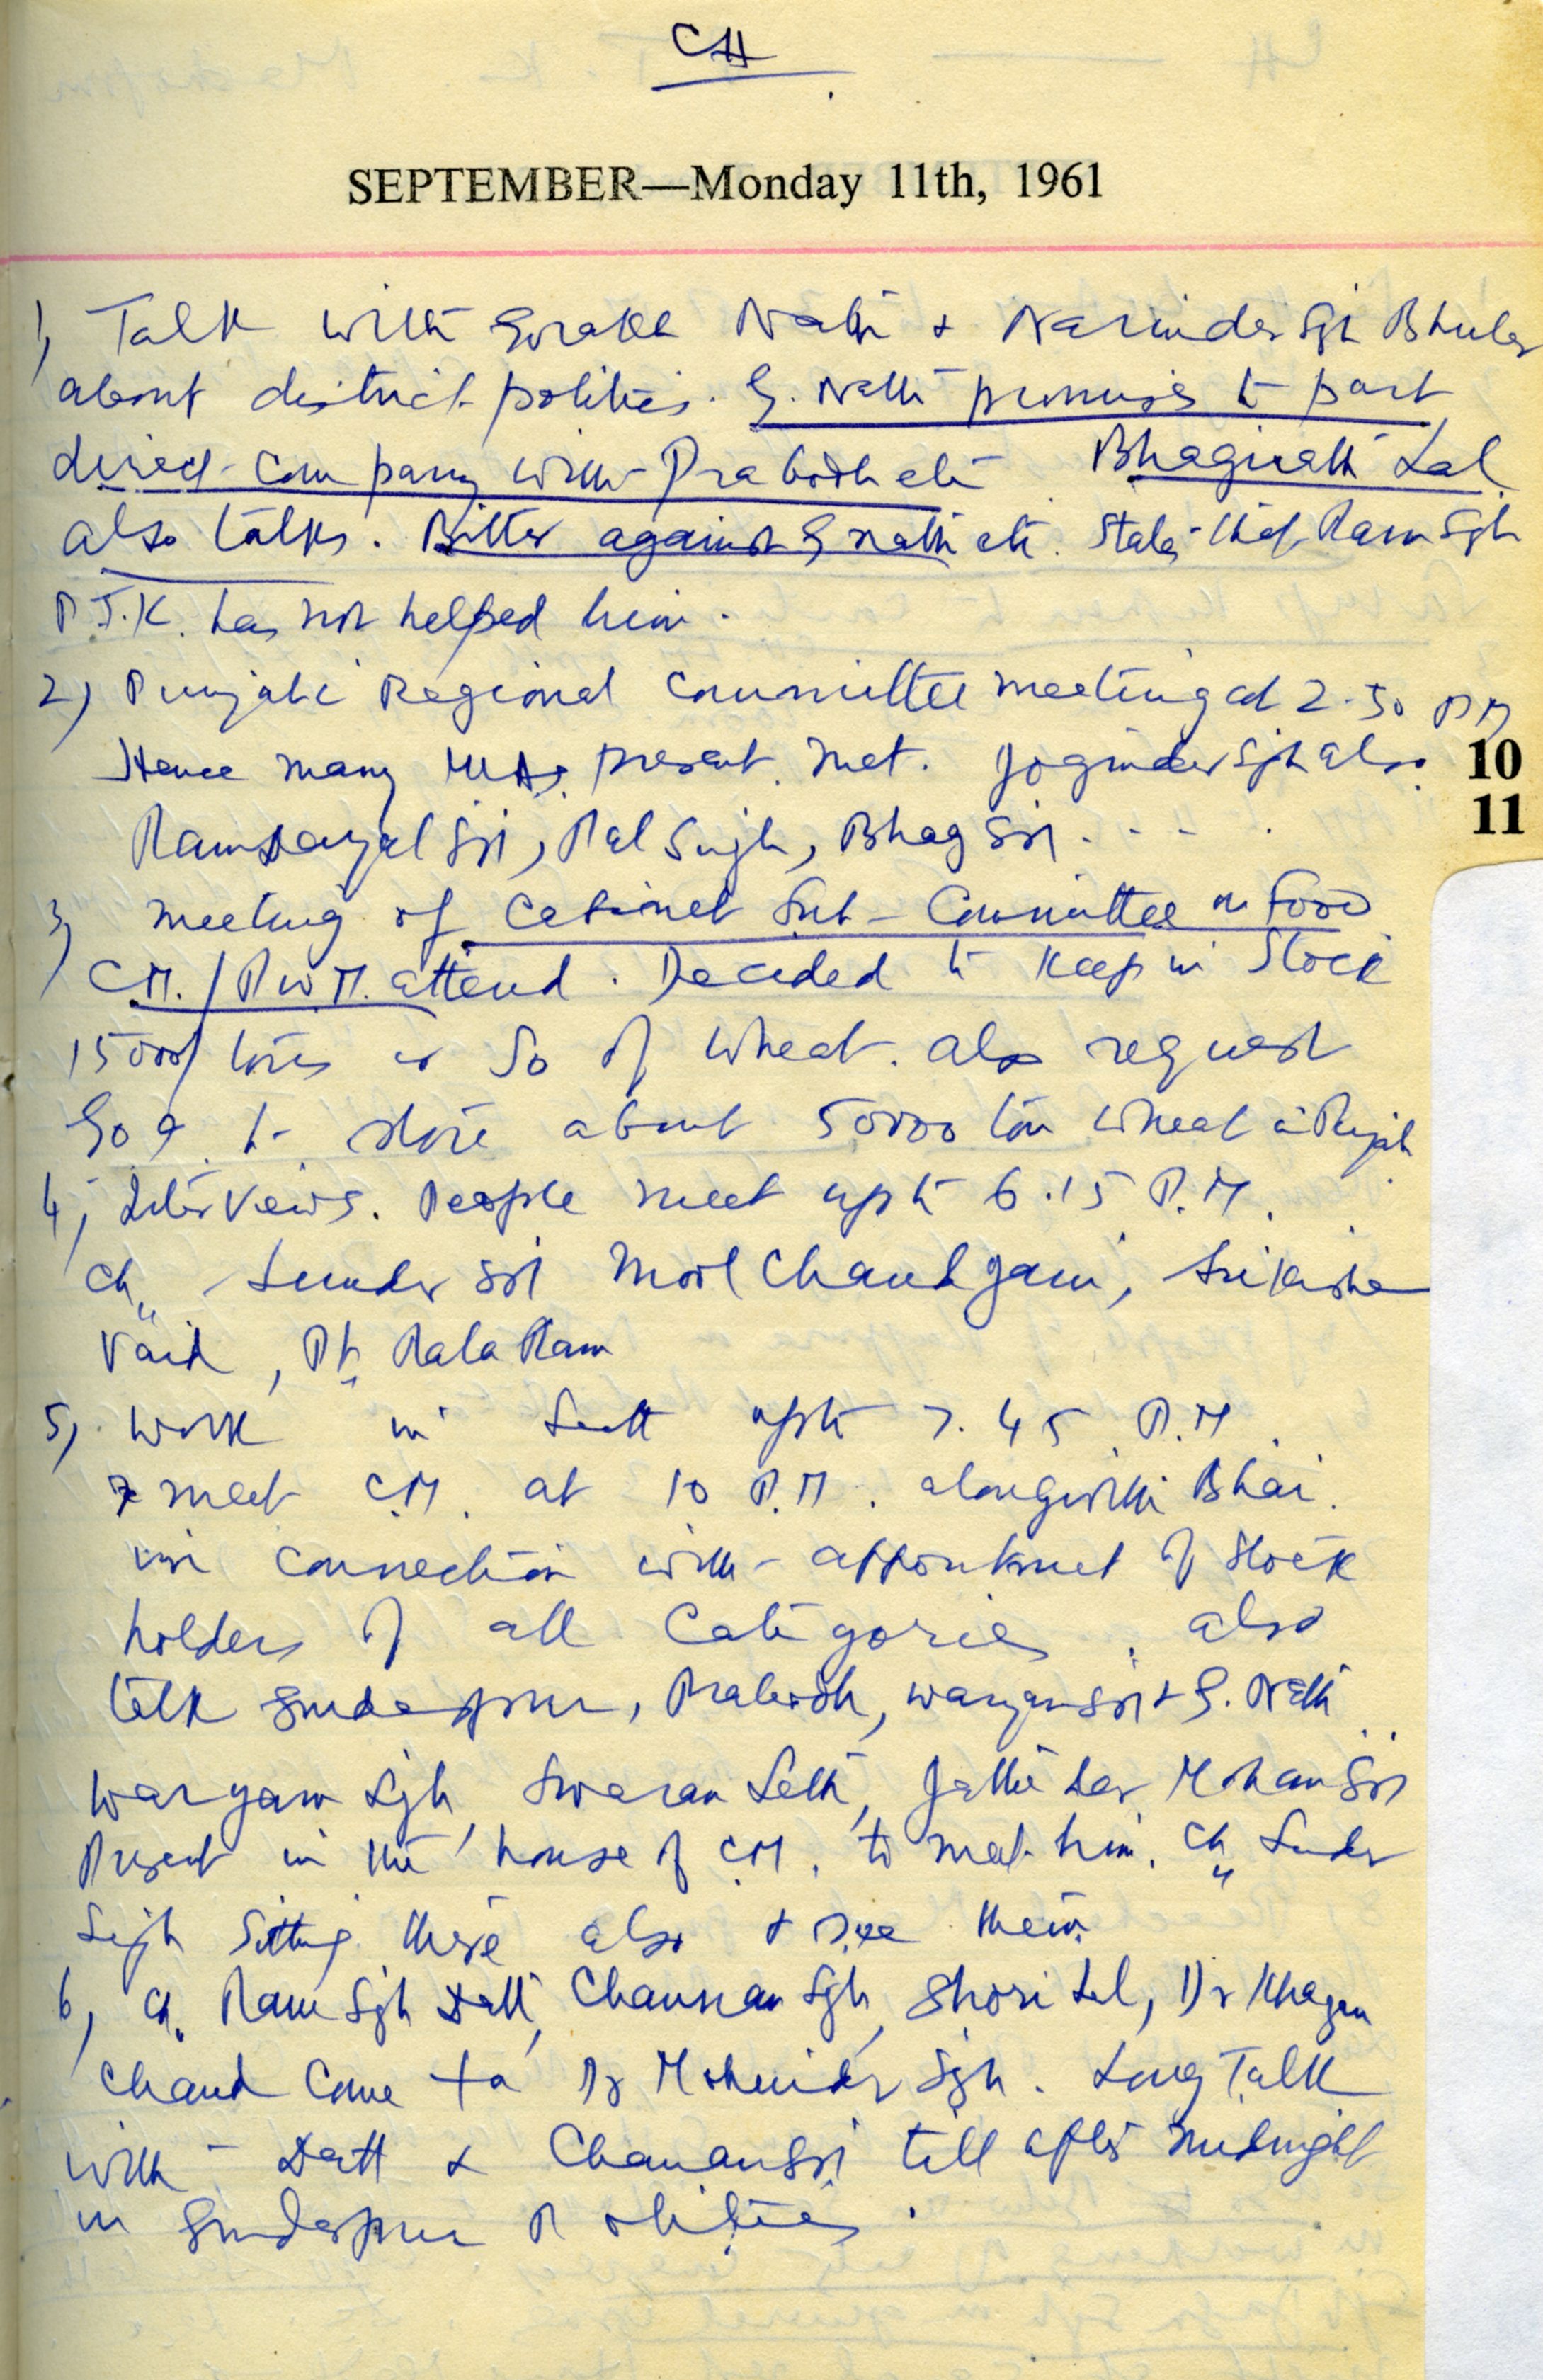 CH
SEPTEMBER—Monday 11th, 1961
1) Talk with Gorakh Nath & Narinder Sgh Bhuler
about district politics. G. Nath promises to part
direct company with Prabodh etc. Bhagirath Lal
also talks. Bitter against G Nath etc. States that Ram Sgh
P.T.K. has not helped him.
2) Punjabi Regional Committee meeting at 2.30 PM
Hence many MLAs present met. Joginder Sgh also
10
Ramdayal Sgh, Pal Singh, Bhag Sgh . . . .
11
3) Meeting of Cabinet Sub-Committee on Food
C.M./P.W.M. attend. Decided to keep in Stock
15000/ tons or so of wheat. also request
GoI. to store about 50000 ton wheat in Punjab
4) Interviews. People meet upto 6.15 P.M.
Ch. Sunder Sgh Mool Chand Jain, Sri Krishan
Vaid, Pt. Rala Ram
5) Work in Sectt upto 7.45 P.M.
meet C.M. at 10 P.M. alongwith Bhai.
in connection with appointment of Stock
holders of all Categories. also
talk Gurdaspur, Prabodh, Waryam Sgh & G. Nath
Waryam Sgh, Swaran Seth, Jathedar Mohan Sgh
Present in the house of C.M. to meet him. Ch. Sunder
Singh Sitting there also & see them
6) Ch. Ram Sgh Datt, Channan Sgh, Shori Lal, Dr Khazan
Chand Come to Dr Mohinder Sgh. Long Talk
with Datt & Chanan Sgh till after midnight
in Gurdaspur Politics.